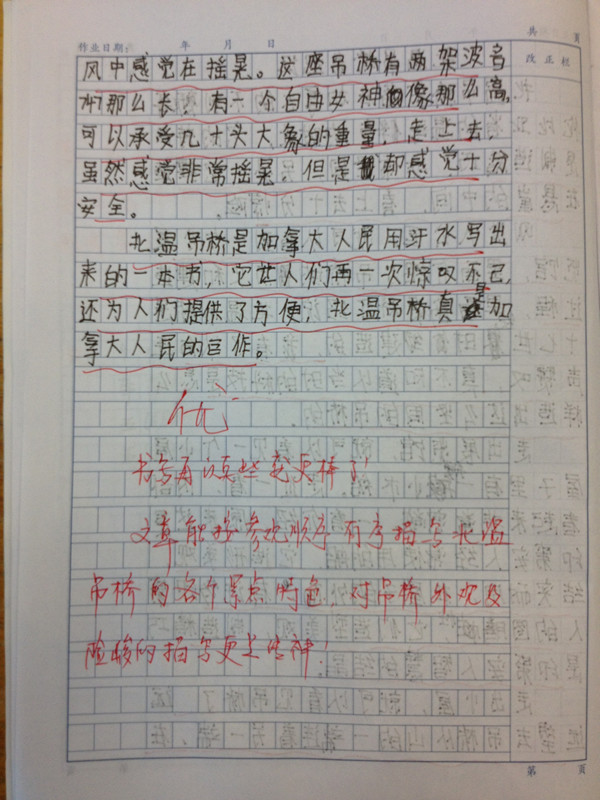 共 页
作业日期: 年 月 日
改正栏
风中感觉在摇晃。这座吊桥有两架波音
那么长，有一个自由女神像那么高，
可以承受几十头大象的重量，走上去，
虽然感觉非常摇晃，但是我却感觉十分
安全。
北温吊桥是加拿大人民用汗水写出
来的一本书，它让人们再一次惊叹不已，
还为人们提供了方便，北温吊桥真是加
拿大人民的巨作。
优
书写再认真些就更棒了！
文章能按参观顺序有序描写北温
吊桥的各个景点特色，对吊桥外观及
险峻的描写更是传神！
第 页